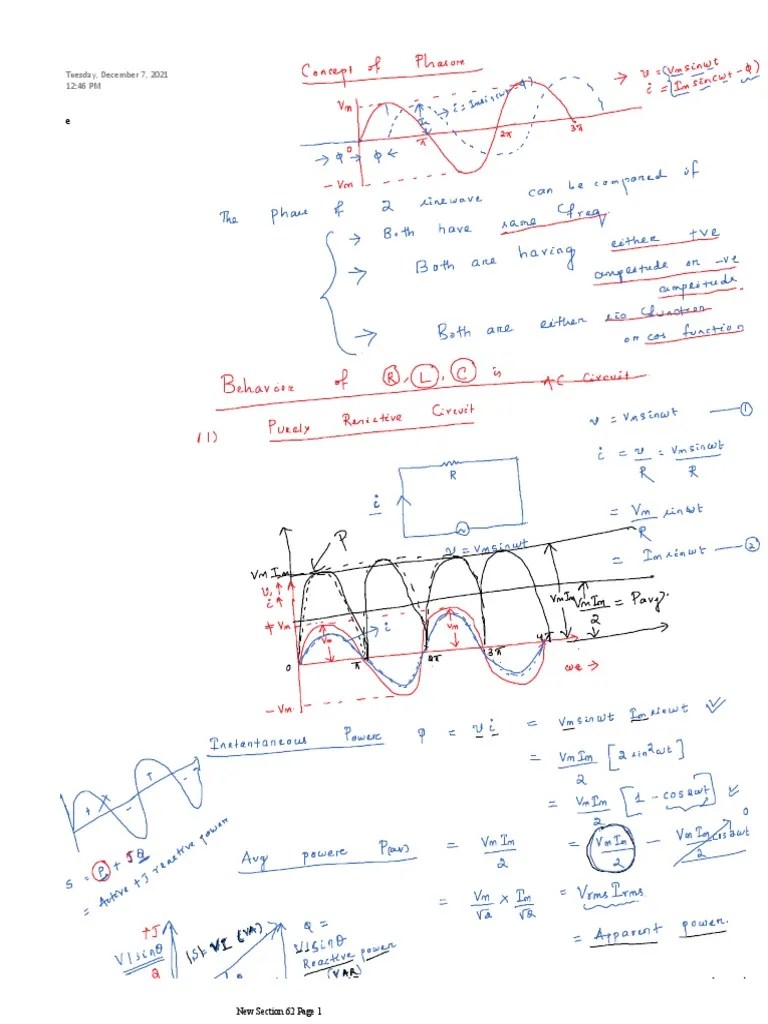 Tuesday, December 7, 2021
12:46 PM
e
Concept of Phasor
Vm
v = (Vm sinωt
i = Im sin(ωt - ϕ)
0
π
2π
3π
→ ϕ → ϕ ←
- Vm
The phase of 2 sinewave can be compared if
→ Both have same freq
→ Both are having either +ve
amplitude or -ve
amplitude
→ Both are either sin function
or cos function
Behavior of R, L, C is AC Circuit
(1) Purely Resistive Circuit
v = Vm sinωt — 1
i = v/R = Vm sinωt/R
= Vm/R sinωt
= Im sinωt — 2
R
i
v = Vm sinωt
P
Vm Im
v,
i
Vm
Vm
i
Vm
Vm Im
Vm Im/2 = Pavg.
0
π
2π
3π
4π
- Vm
Instantaneous Power p = v i = Vm sinωt Im sinωt
= Vm Im/2 [2 sin²ωt]
= Vm Im/2 [1 - cos2ωt]
+
-
S = P + JQ
= Active + J reactive power
Avg power P(av) = Vm Im/2 = Vm Im/2 - Vm Im cos2ωt/2 0
= Vm/√2 × Im/√2 = Vrms Irms
= Apparent power.
+J
VI sinθ
Q
|S| = VI (VA)
Q =
VI sinθ
Reactive power
(VAR)
New Section 62 Page 1